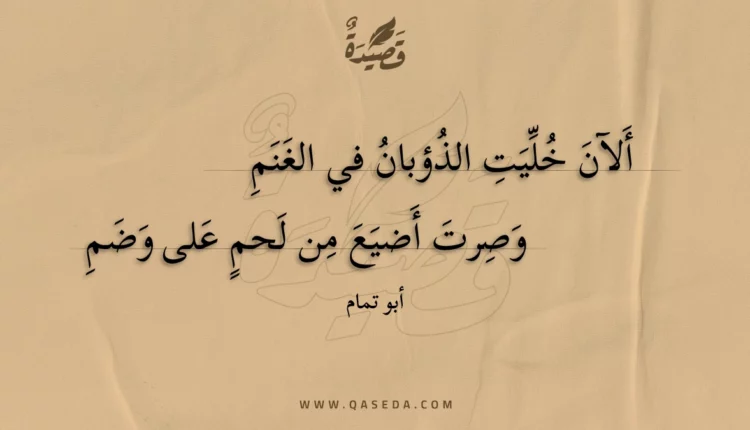 قَصِيدَةٌ
أَلآنَ خُلِّيَتِ الذُؤبانُ في الغَنَمِ
وَصِرتَ أَضيَعَ مِن لَحمٍ عَلى وَضَمِ
أبو تمام
WWW.QASEDA.COM